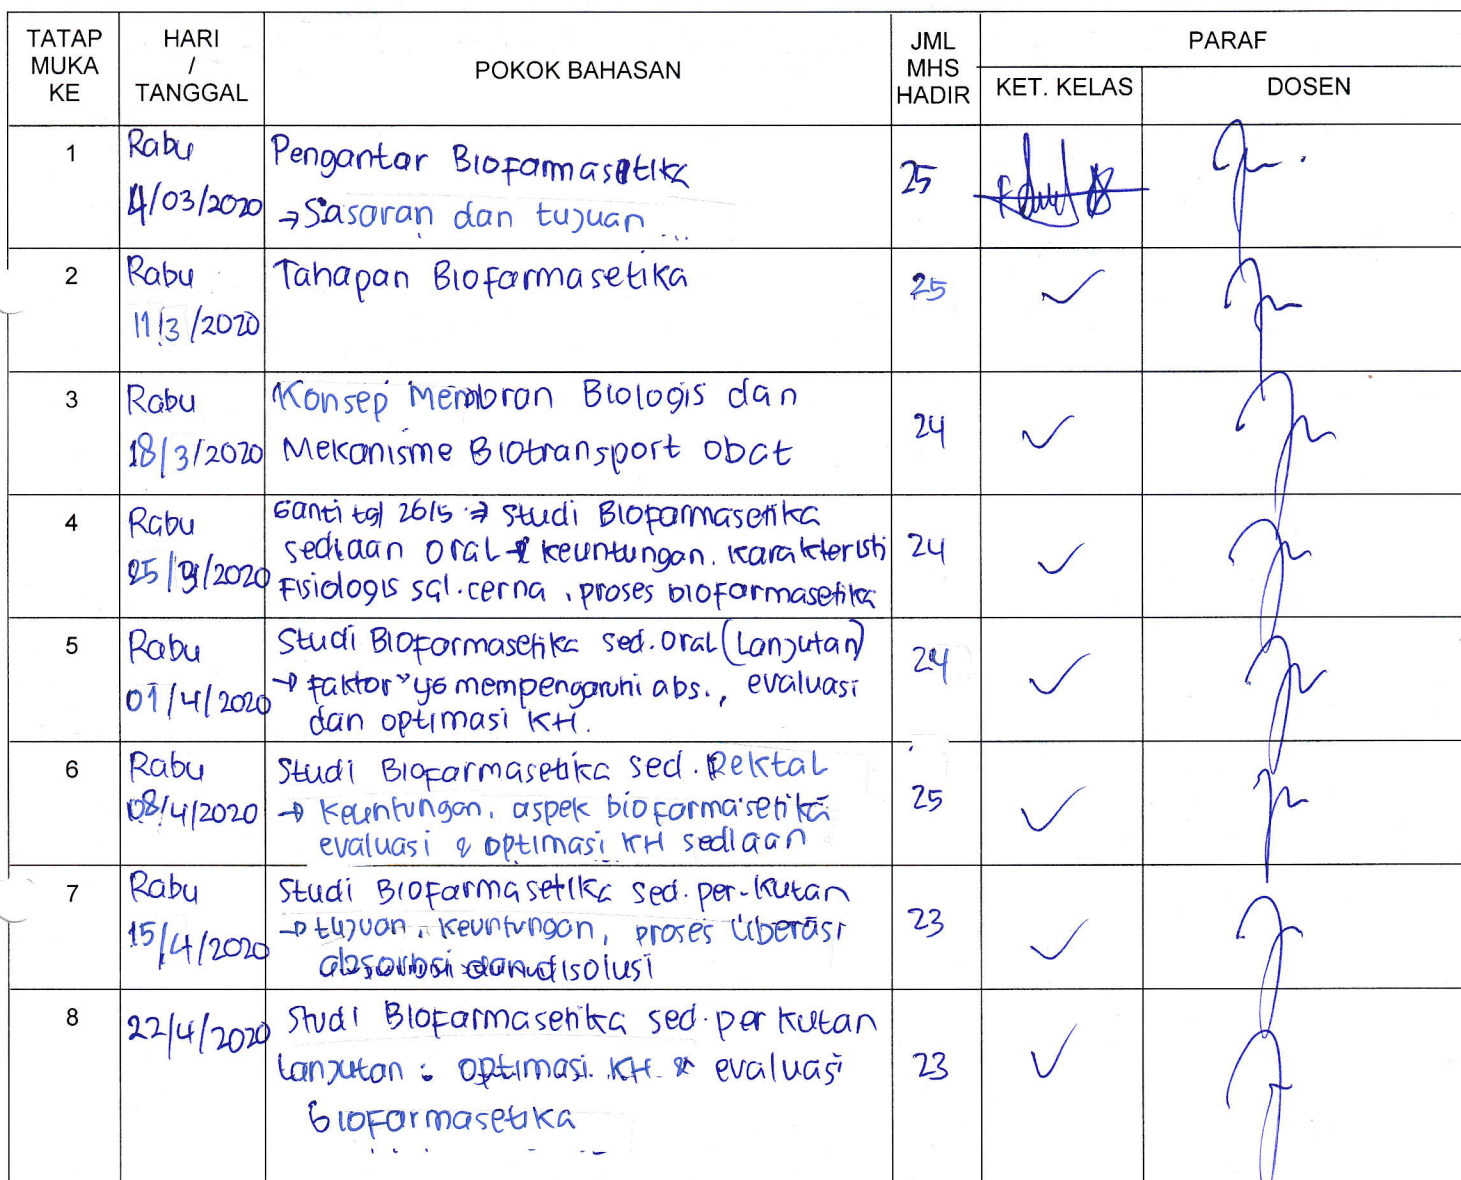 TATAP MUKA KE
HARI / TANGGAL
POKOK BAHASAN
JML MHS HADIR
PARAF
KET. KELAS
DOSEN
1
Rabu
4/03/2020
Pengantar Biofarmasetika
→ Sasaran dan tujuan ...
25
2
Rabu
11/3/2020
Tahapan Biofarmasetika
25
3
Rabu
18/3/2020
Konsep Membran Biologis dan
Mekanisme Biotransport obat
24
4
Rabu
25/3/2020
Ganti tgl 26/5 → Studi Biofarmasetika
sediaan oral → keuntungan, karakteristi
Fisiologis sal. cerna, proses biofarmasetika
24
5
Rabu
01/4/2020
Studi Biofarmasetika sed. Oral (Lanjutan)
→ faktor" yg mempengaruhi abs., evaluasi
dan optimasi KH.
24
6
Rabu
08/4/2020
Studi Biofarmasetika sed. Rektal
→ Keuntungan, aspek biofarmasetika
evaluasi & optimasi KH sediaan
25
7
Rabu
15/4/2020
Studi Biofarmasetika sed. per-kutan
→ tujuan, keuntungan, proses liberasi
absorbsi dan disolusi
23
8
22/4/2020
Studi Biofarmasetika sed. per kutan
Lanjutan : optimasi KH & evaluasi
biofarmasetika
23